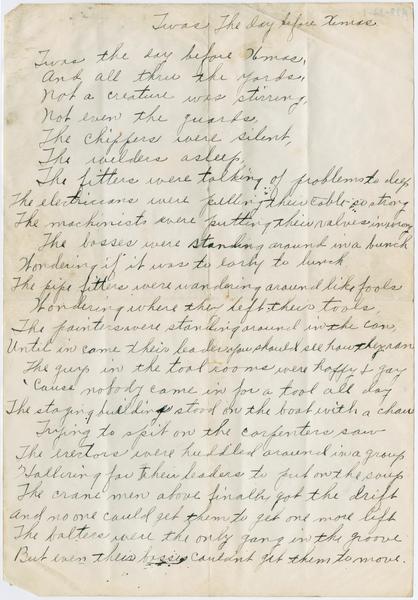 'Twas The day before Xmas
'Twas the day before Xmas,
And all thru the yards,
Not a creature was stirring,
Not even the guards,
The chippers were silent,
The wilders asleep,
The fitters were talking of problems to deep
The electricians were pulling their cable so strong
The machinists were putting their valves in wrong
The bosses were standing around in a bunch
Wondering if it was to early to lunch
The pipe fitters were wandering around like fools
Wondering where they left their tools
The painters were standing around in the can,
Until in came their leaders you should see how they ran
The guys in the tool rooms were happy & gay
'Cause nobody came in for a tool all day
The staging building stood on the boat with a chaw
Trying to spit on the carpenters saw
The erectors were huddled around in a group
Hollering for their leaders to put on the soup
The crane men above finally got the drift
And no one could get them to get one more lift
The bolters were the only gang in the groove
But even their bosses couldn't get them to move.